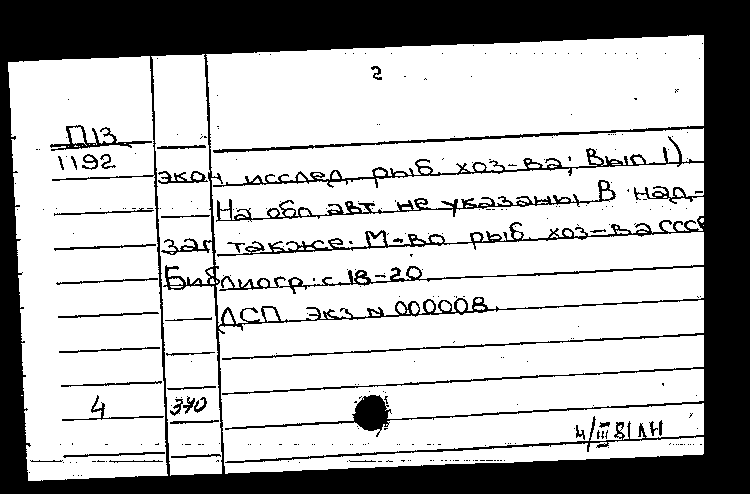 2
П13
1192
экон. исслед. рыб. хоз-ва; Вып. 1).
На обл. авт. не указаны. В над-
заг. также: М-во рыб. хоз-ва СССР
Библиогр.: с. 18-20.
ДСП. Экз. N 000008.
4 340
4/III 81 ЛН